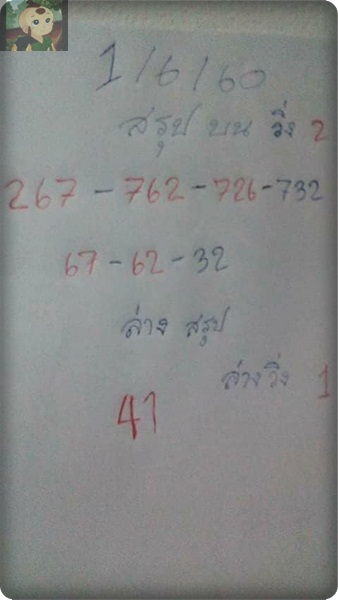 1/6/60
สรุป บน วิ่ง 2
267 - 762 - 726 - 732
67 - 62 - 32
ล่าง สรุป
ล่างวิ่ง 1
41